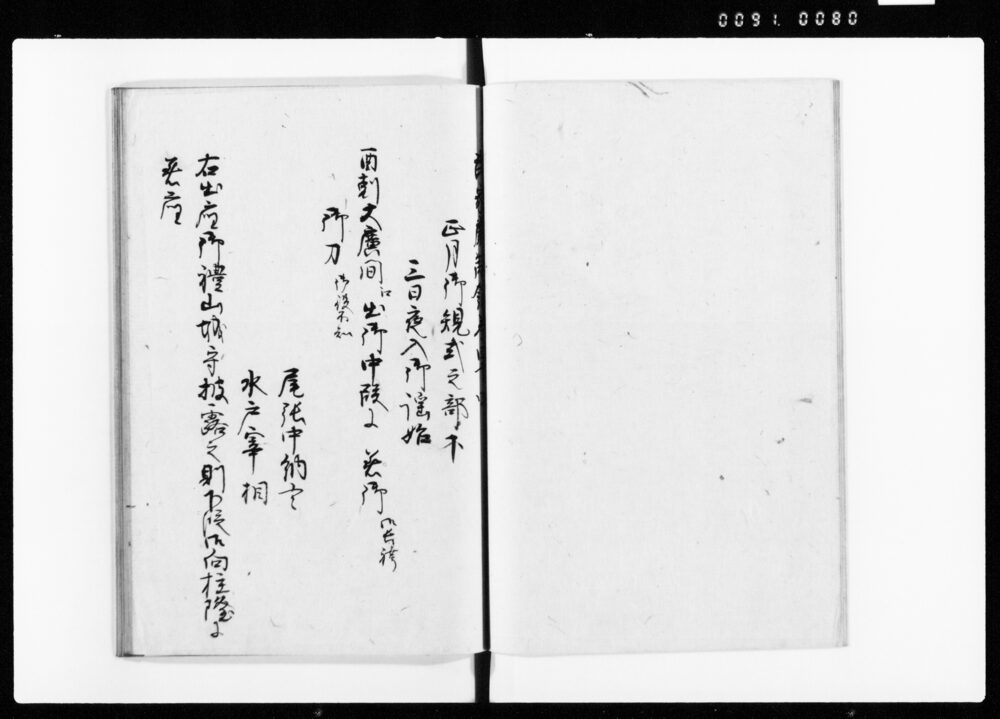 0091. 0080
正月御規式之部
三日夜入御謡始
酉刻大廣間江出御中段ニ着御 御長袴
御刀 御役不知
尾張中納言
水戸宰相
右出座御禮山城守披露之則下段御向柱際ニ
着座